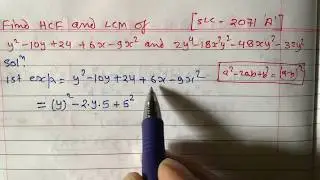 Find HCF and LCM of [SLC - 2071 A]
y²-10y+24 +6x-9x² and 2y⁴-18x²y²-48xy²-32y²
Solⁿ
1st expⁿ= y²-10y+24+6x-9x²
a²-2ab+b² = (a-b)²
= (y)²-2.y.5+5²